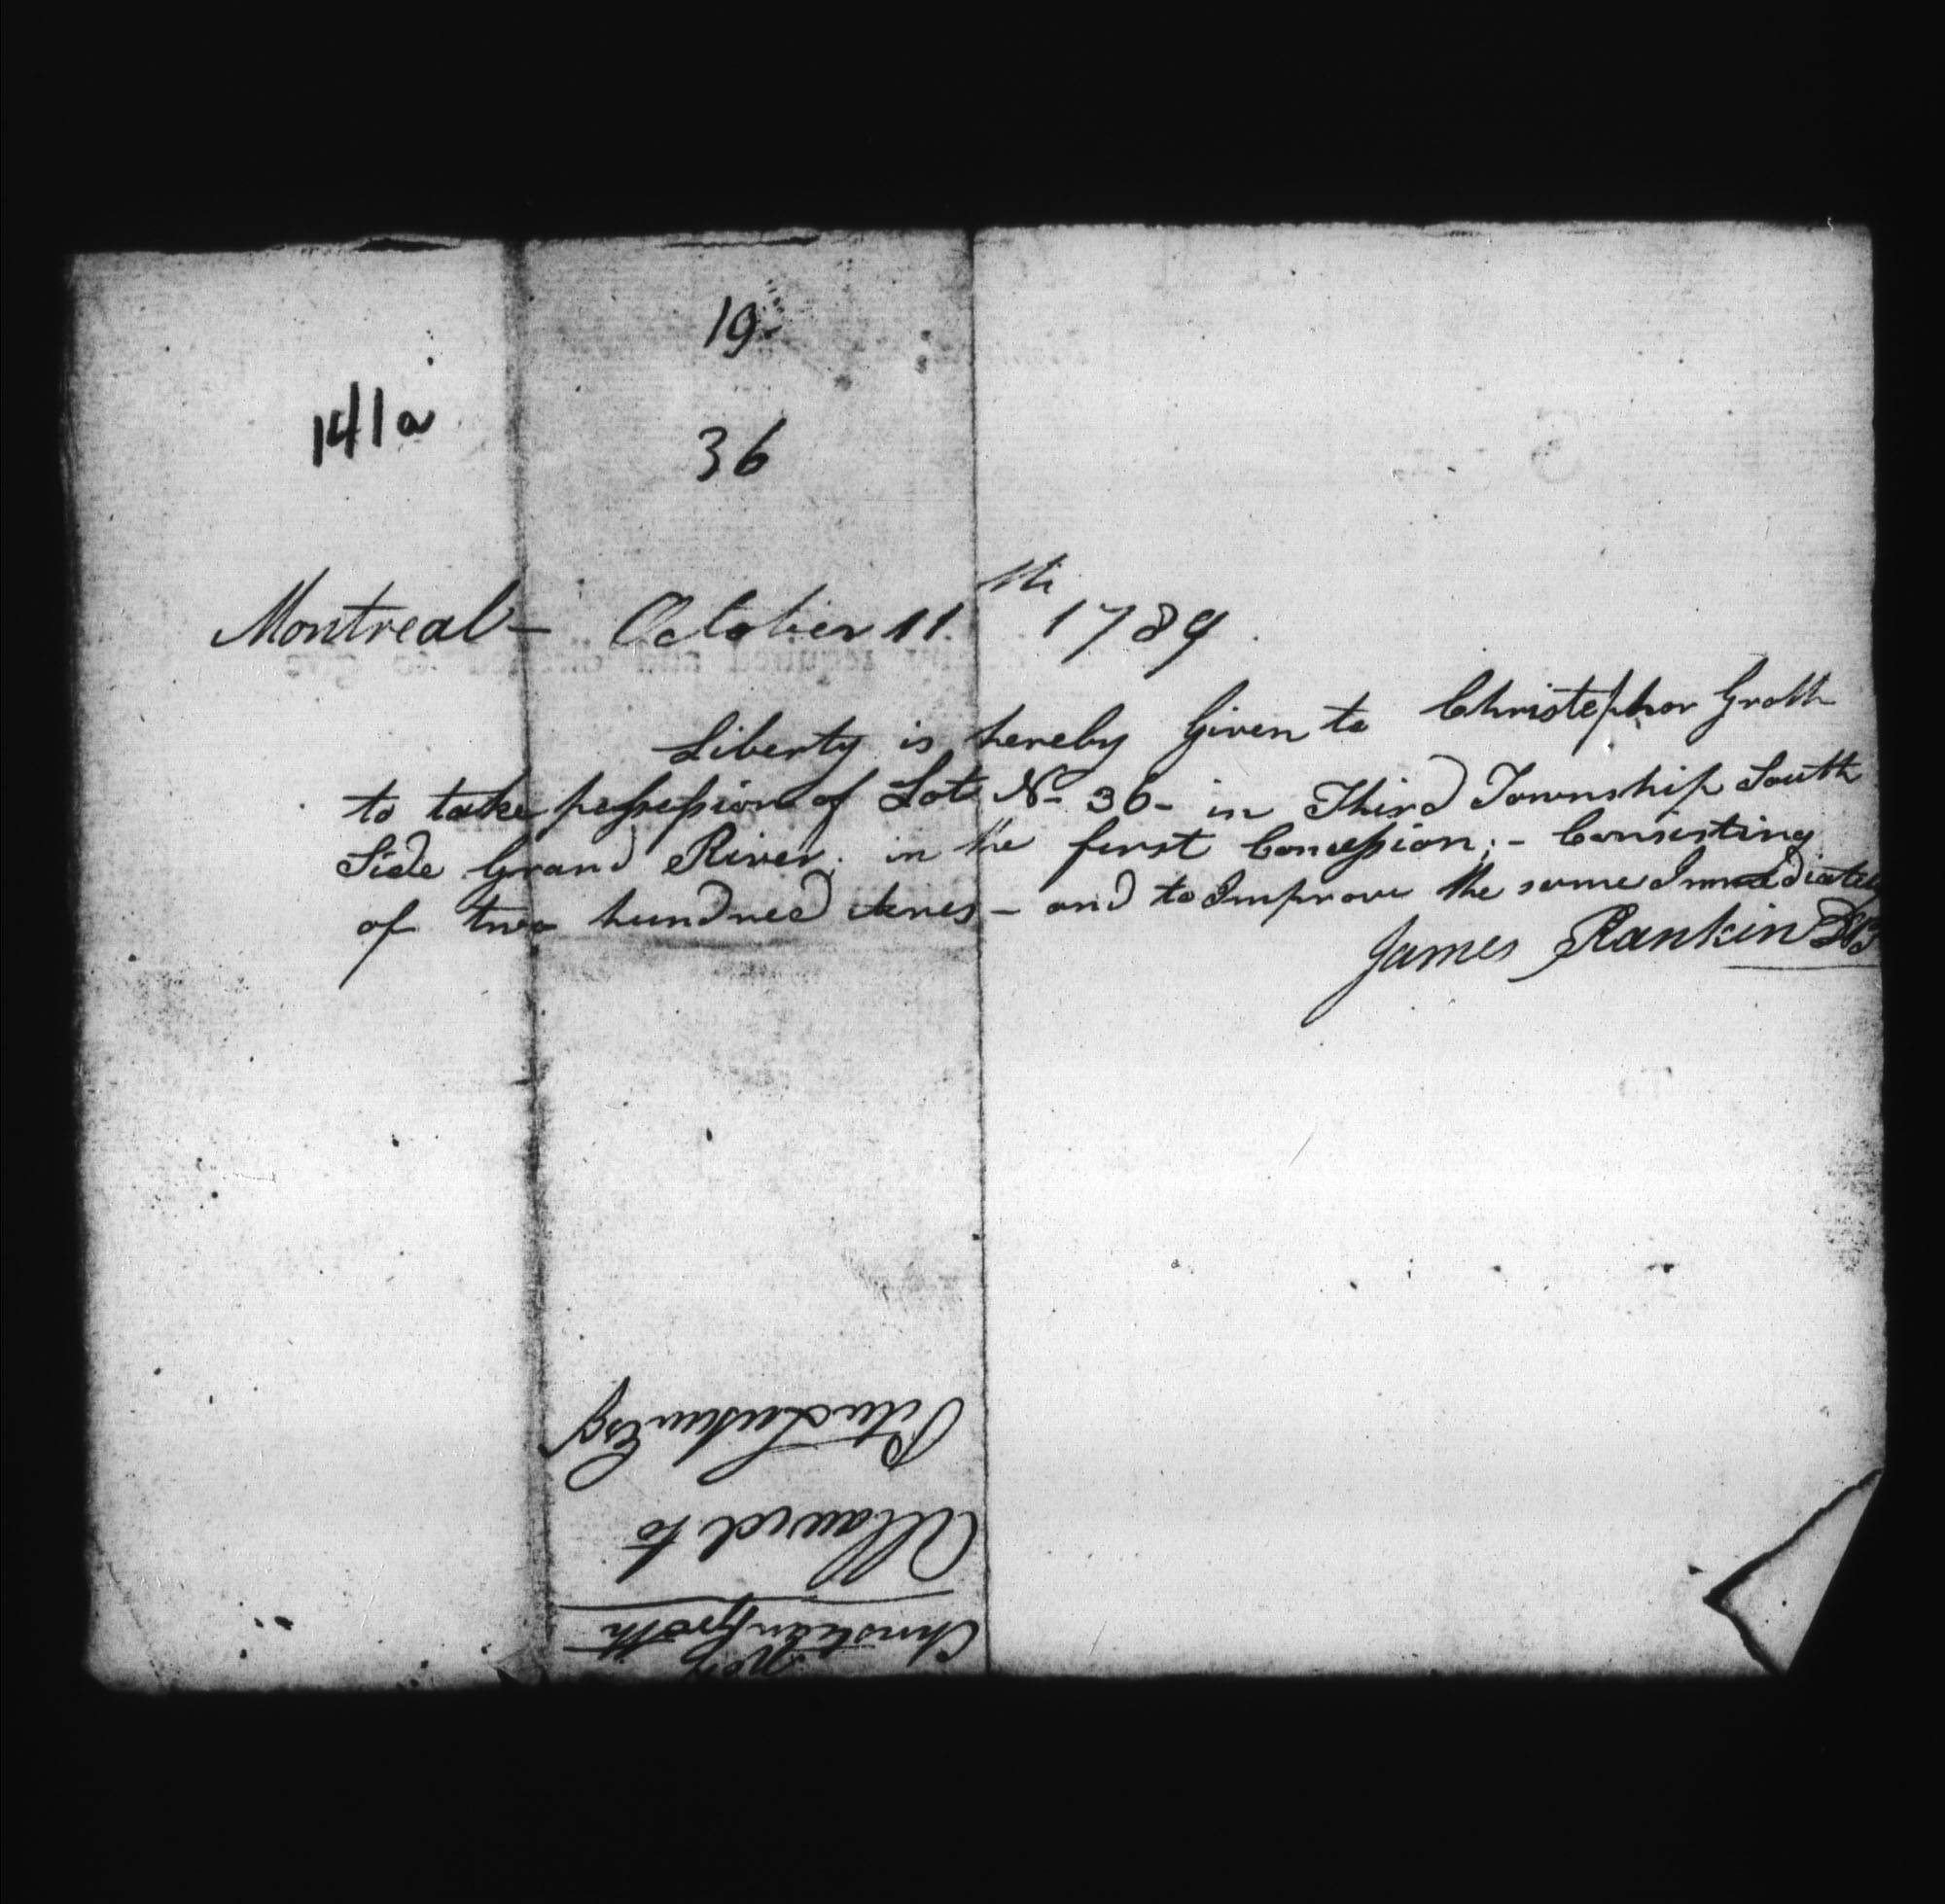 19.
141a
36
Montreal - October 11th 1789.
Liberty is hereby Given to Christephor Groth
to take possession of Lot No. 36 - in Third Township South
Side Grand River, in the first Concession; - Consisting
of two hundred Acres - and to Improve the same Immediately
James Rankin
Christian Groth
Allowed to
Esq